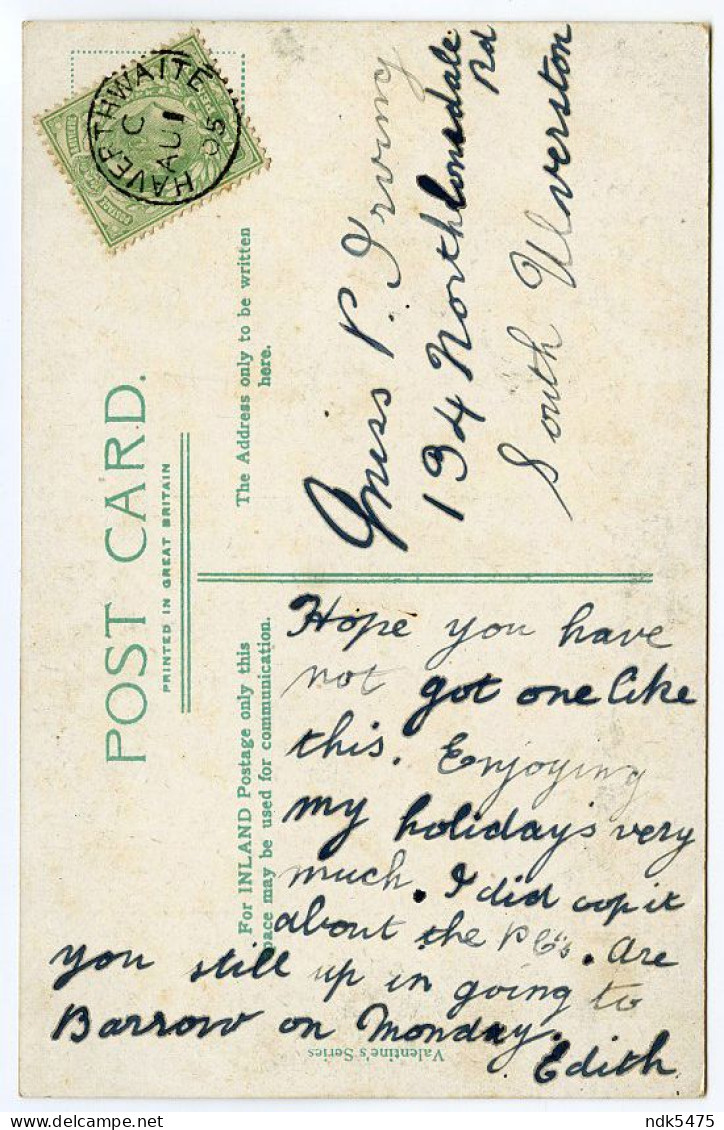 HAVERTHWAITE
C
AU 1
05
POST CARD.
PRINTED IN GREAT BRITAIN
The Address only to be written
here.
Miss P. Irving
194 North Lonsdale
Rd
South Ulverston
For INLAND Postage only this
space may be used for communication.
Hope you have
not got one like
this. Enjoying
my holidays very
much. I did cop it
about the P C's. Are
you still up in going to
Barrow on Monday.
Edith
Valentine's Series
ndk5475